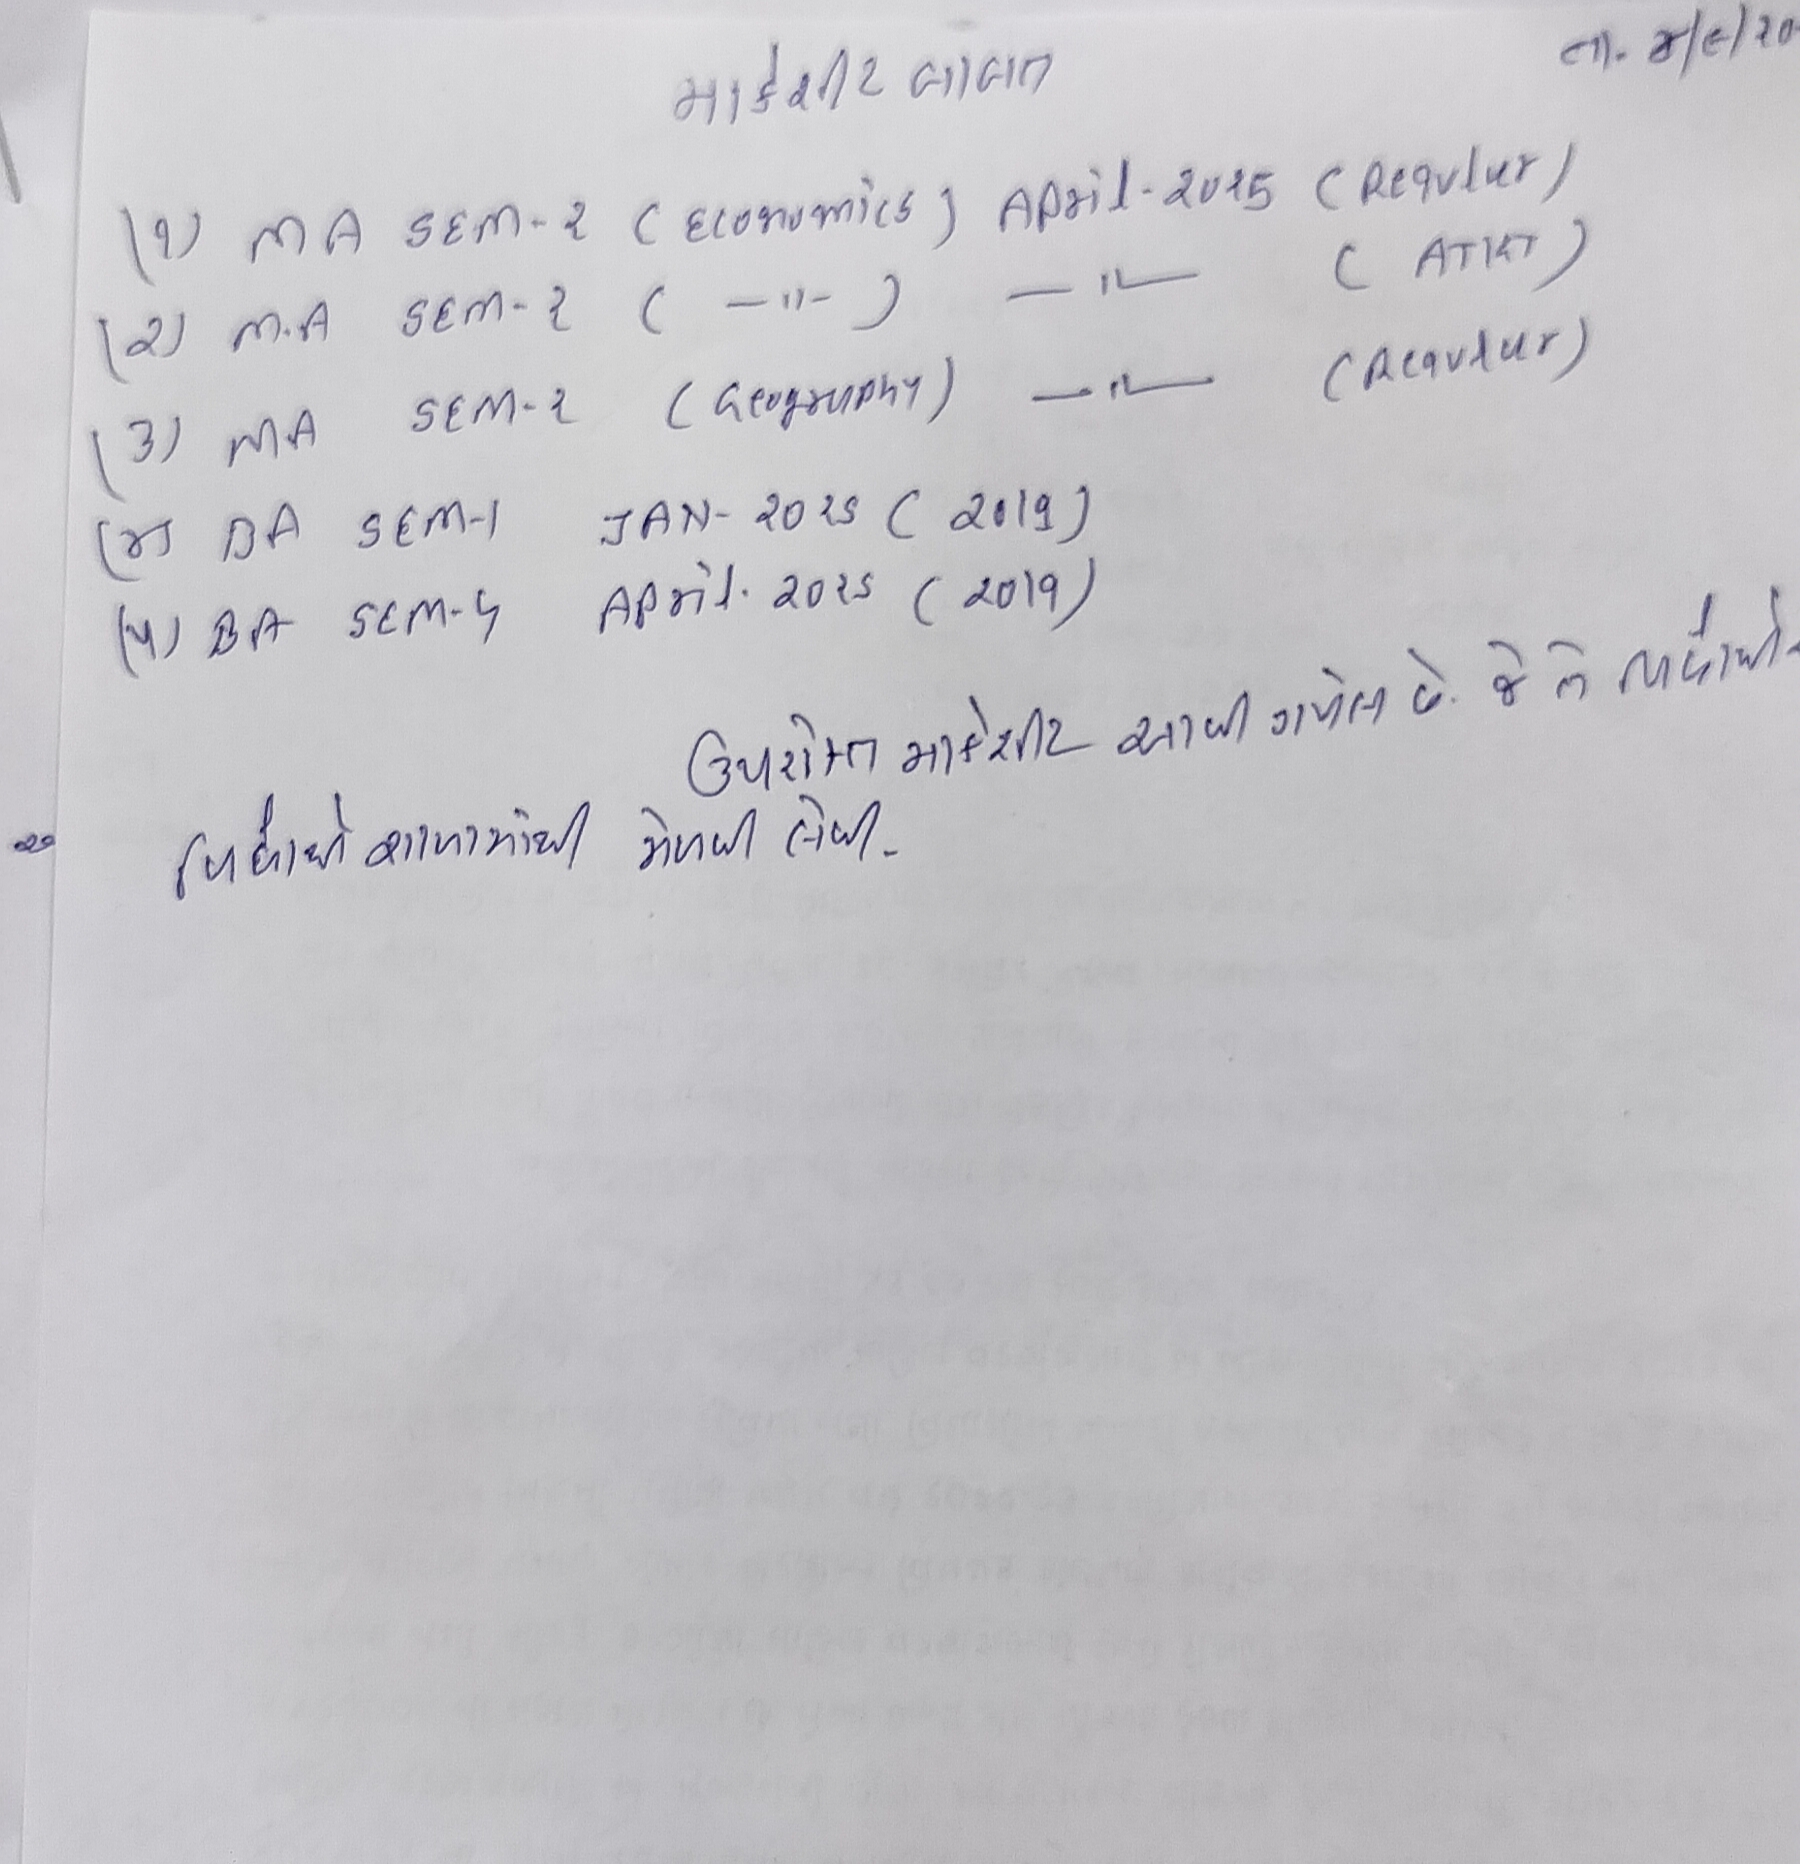 તા. ૪/૯/૨૦
માર્કશીટ બાબત
(૧) MA SEM-2 (Economics) April-2025 (Regular)
(૨) M.A SEM-2 ( —〃— ) —〃— ( ATKT )
(૩) MA SEM-2 (Geography) —〃— (Regular)
(૪) BA SEM-1 JAN-2025 ( 2019 )
(૫) BA SEM-4 April-2025 ( 2019 )
ઉપરોક્ત માર્કશીટ આવી ગયેલ છે. જે તે
વિદ્યાર્થીએ કાર્યાલયમાંથી મેળવી લેવી.